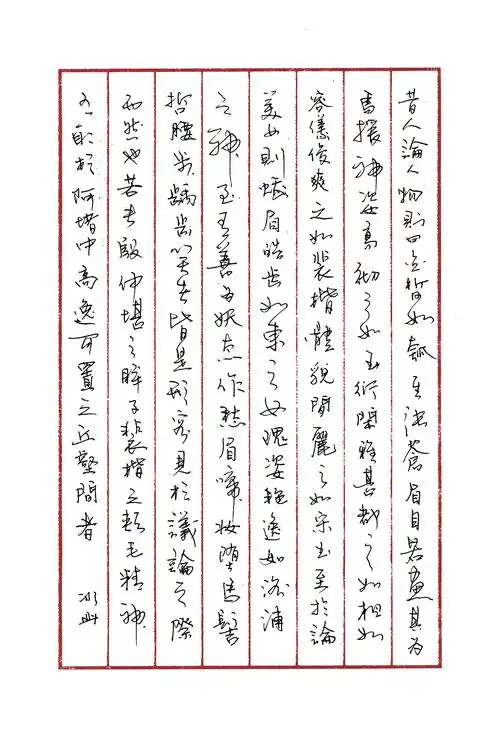 昔人論人物則曰白皙如瓠張蒼眉目若畫其為
馬援神姿高徹之如王衍閑雅甚都之如相如
容儀俊爽之如裴楷體貌閒麗之如宋玉至於論
美女則蛾眉皓齒如東之女瑰姿艷逸如洛浦
之神至有善為妖態作愁眉啼妝墮馬髻
折腰步齲齒笑者皆是形容見於議論之際
而然也若夫殷仲堪之眸子裴楷之頰毛精神
有取於阿堵中高逸可置之丘壑間者